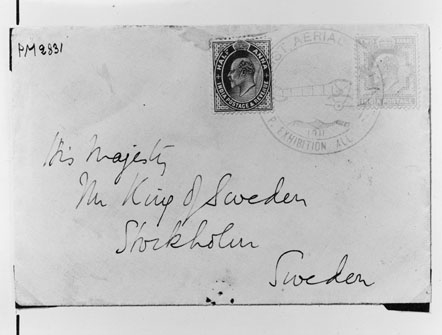 PM2831
HALF ANNA
INDIA POSTAGE & REVENUE
FIRST AERIAL
1911
U.P. EXHIBITION ALL
His Majesty
The King of Sweden
Stockholm
Sweden